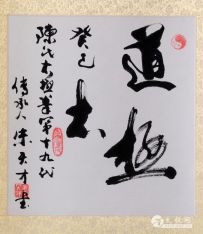 道極
癸巳書
陳氏太極拳第十九代
傳承人陳天才書